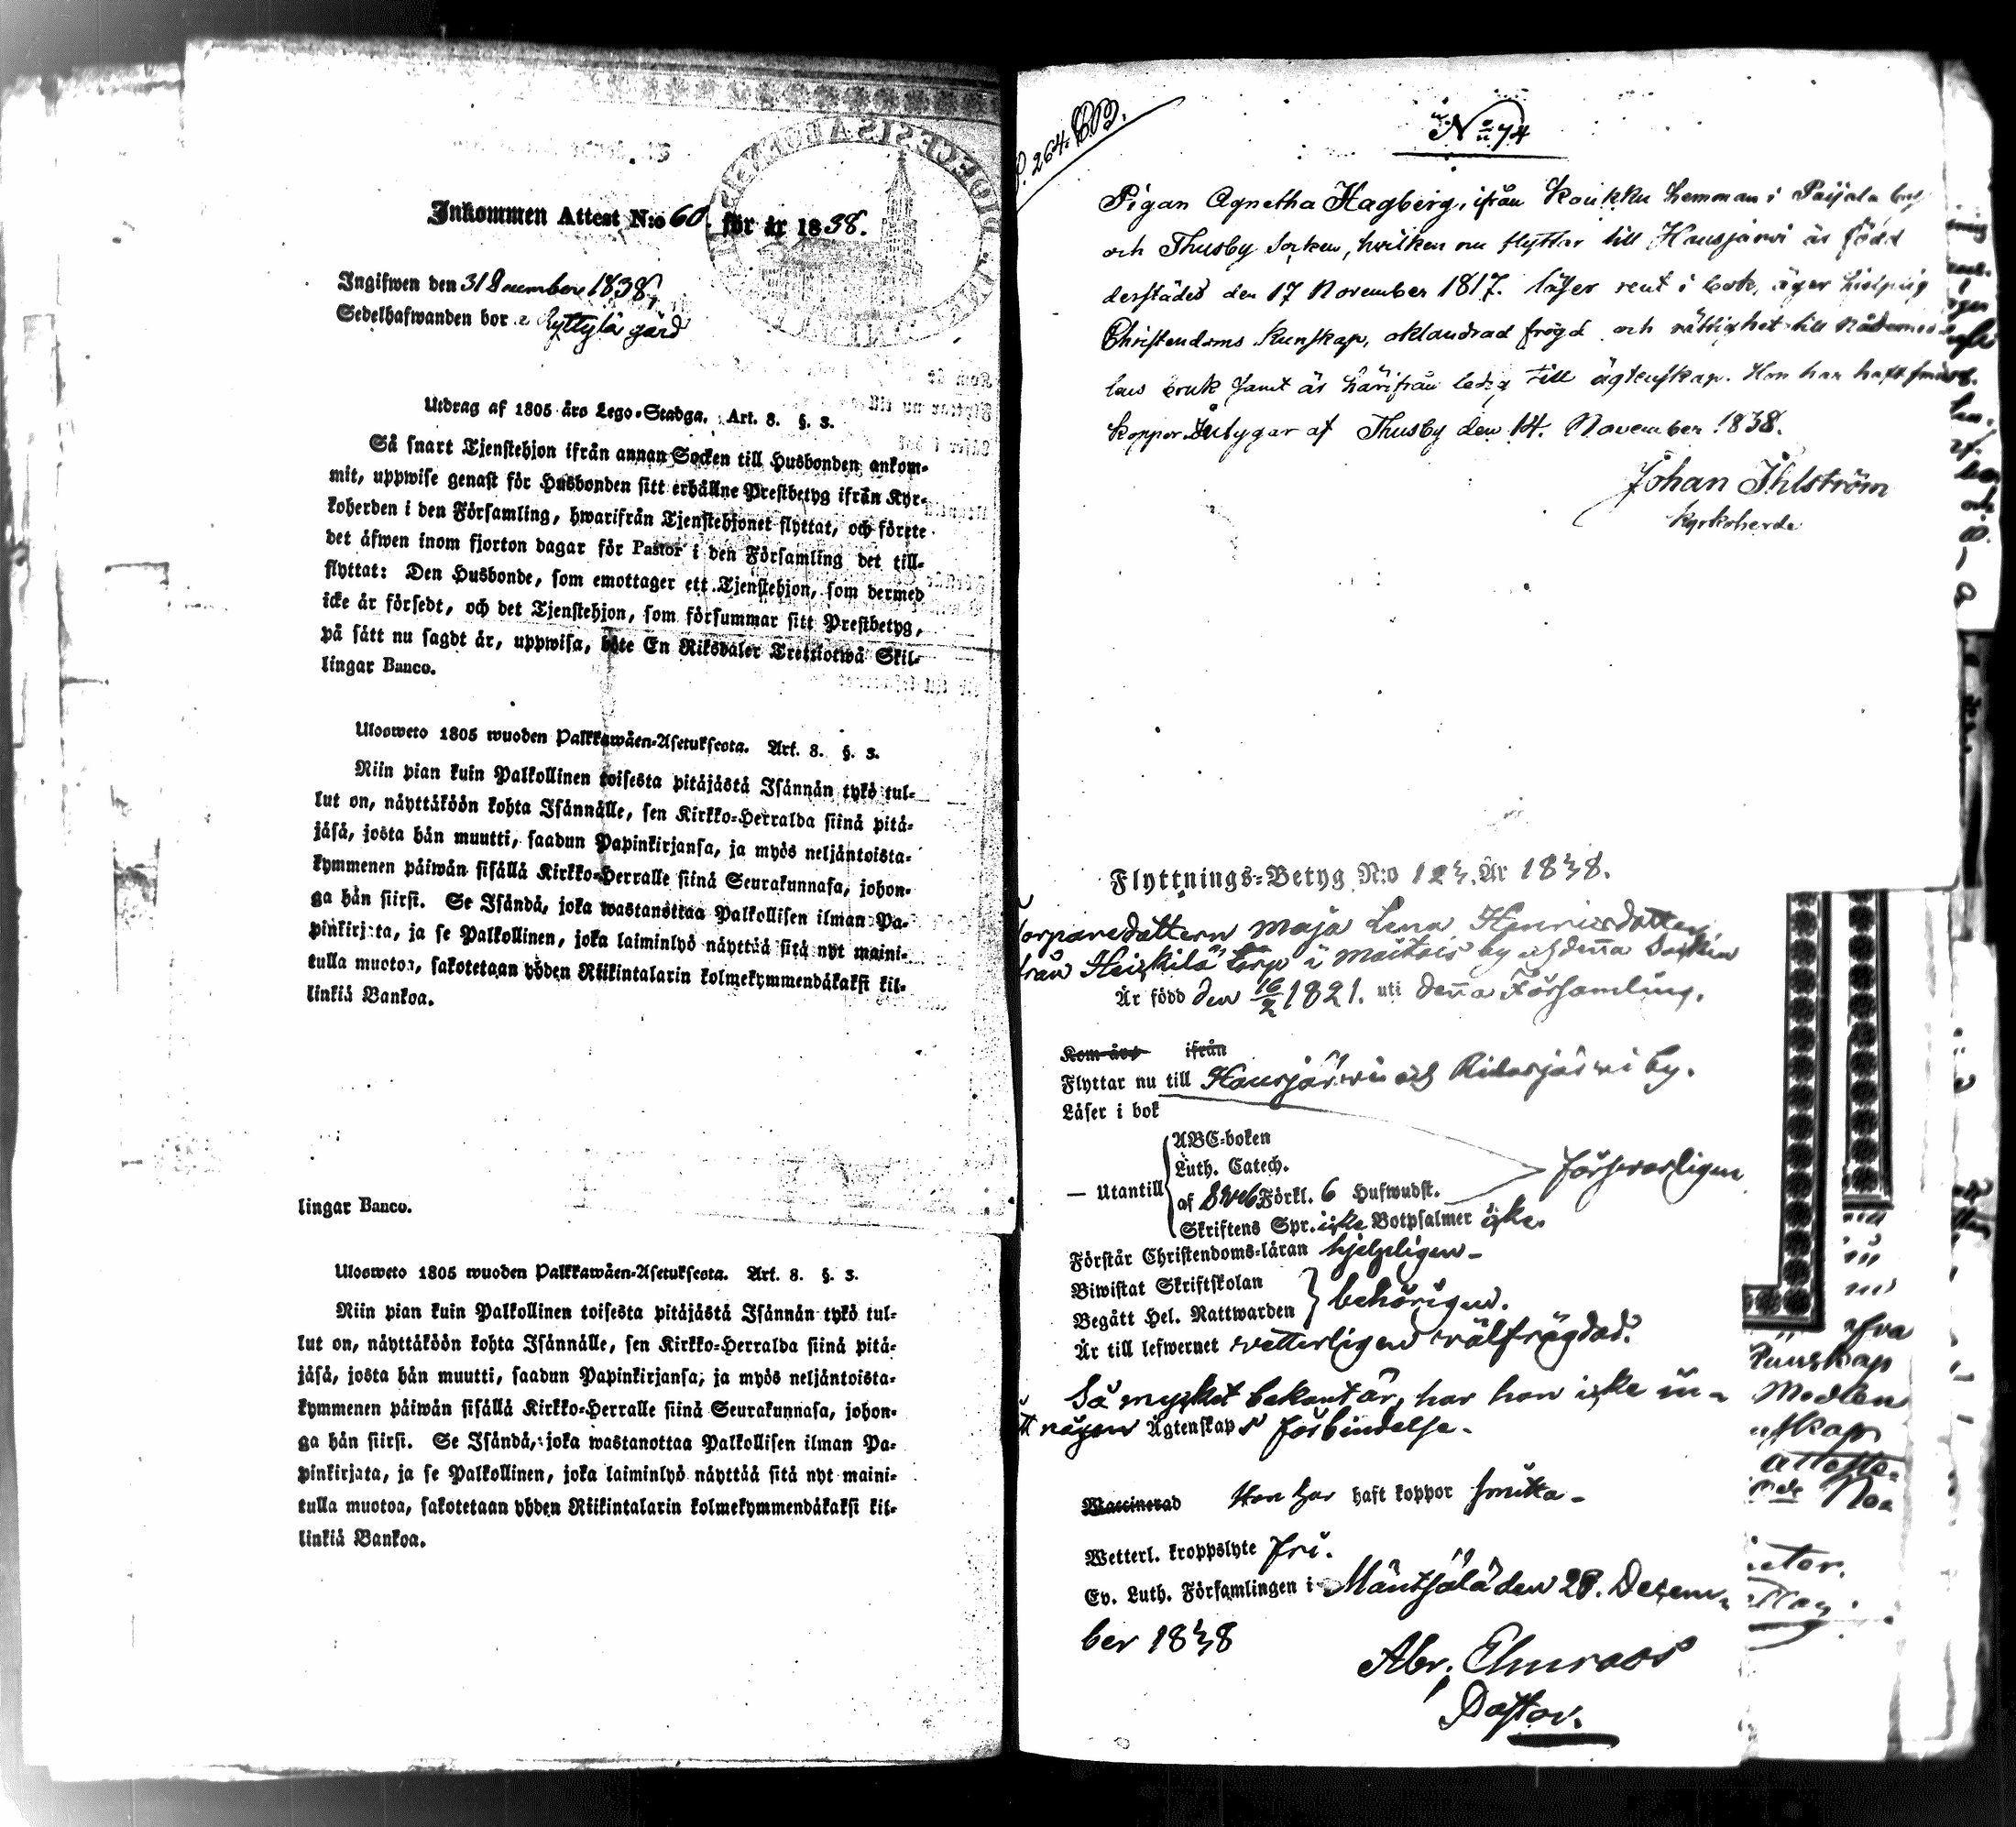 Inkommen Attest N:o 60. för år 1838.
Ingifwen den 31 December 1838,
Sedelhafwanden bor å Ryttylä gård
Utdrag af 1805 års Lego-Stadga. Art. 8. §. 3.
Så snart Tjenstehjon ifrån annan Socken till Husbonden ankom-
mit, uppwise genast för Husbonden sitt erhållne Prestbetyg ifrån Kyr-
koherden i den Församling, hwarifrån Tjenstehjonet flyttat, och förete
det äfwen inom fjorton dagar för Pastor i den Församling det till-
flyttat: Den Husbonde, som emottager ett Tjenstehjon, som dermed
icke är försedt, och det Tjenstehjon, som försummar sitt Prestbetyg,
på sätt nu sagdt är, uppwisa, böte En Riksdaler Trettiotwå Skil-
lingar Banco.
Ulosweto 1805 wuoden Palkkawäen-Asetuksesta. Art. 8. §. 3.
Niin pian kuin Palkollinen toisesta pitäjästä Isännän tykö tul-
lut on, näyttäköön kohta Isännälle, sen Kirkko-Herralda siinä pitä-
jäsä, josta hän muutti, saadun Papinkirjansa, ja myös neljäntoista-
kymmenen päiwän sisällä Kirkko-Herralle siinä Seurakunnasa, johon-
ga hän siirsi. Se Isändä, joka wastanottaa Palkollisen ilman Pa-
pinkirjata, ja se Palkollinen, joka laiminlyö näyttää sitä nyt maini-
tulla muotoa, sakotetaan yhden Riikintalarin kolmekymmendäkaksi kil-
linkiä Bankoa.
lingar Banco.
Ulosweto 1805 wuoden Palkkawäen-Asetuksesta. Art. 8. §. 3.
Niin pian kuin Palkollinen toisesta pitäjästä Isännän tykö tul-
lut on, näyttäköön kohta Isännälle, sen Kirkko-Herralda siinä pitä-
jäsä, josta hän muutti, saadun Papinkirjansa, ja myös neljäntoista-
kymmenen päiwän sisällä Kirkko-Herralle siinä Seurakunnasa, johon-
ga hän siirsi. Se Isändä, joka wastanottaa Palkollisen ilman Pa-
pinkirjata, ja se Palkollinen, joka laiminlyö näyttää sitä nyt maini-
tulla muotoa, sakotetaan yhden Riikintalarin kolmekymmendäkaksi kil-
linkiä Bankoa.
P. 264.
No 74
Pigan Agnetha Hagberg, ifrån Koukku hemman i Paijala by
och Thusby Socken, hwilken nu flyttar till Hausjärwi är född
derstädes den 17 November 1817. läser rent i bok, äger hjelplig
Christendoms kunskap, oklandrad frägd och rättighet till Nådemed-
lens bruk samt är härifrån ledig till ägtenskap. Hon har haft
koppor. Intygar af Thusby den 14. November 1838.
Johan Ihlström
Kyrkoherde
Flyttnings-Betyg N:o 123. År 1838.
Torparedottern Maja Lena Henricsdotter,
från Heickilä torp i by af denna Socken
Är född den 16/2 1821. uti denna Församling.
Kom år ifrån
Flyttar nu till Hausjärwi och Ridasjärwi by.
Läser i bok
ABC-boken
Luth. Catech. försvarligen
— Utantill af Sveb Förkl. 6 Hufwudst.
Skriftens Spr. icke Botpsalmer icke.
Förstår Christendoms-läran hjelpligen -
Biwistat Skriftskolan
Begått Hel. Nattwarden behörigen.
Är till lefwernet vetterligen välfrägdad.
Så mycket bekant är, har hon icke in-
någon Ägtenskaps förbindelse.
Waccinerad Hon har haft koppor smitta -
Wetterl. kroppslyte fri.
Ev. Luth. Församlingen i Mäntsälä den 28. Decem-
ber 1838
Abr. Elmroos
Pastor.
kunskap
Medlen